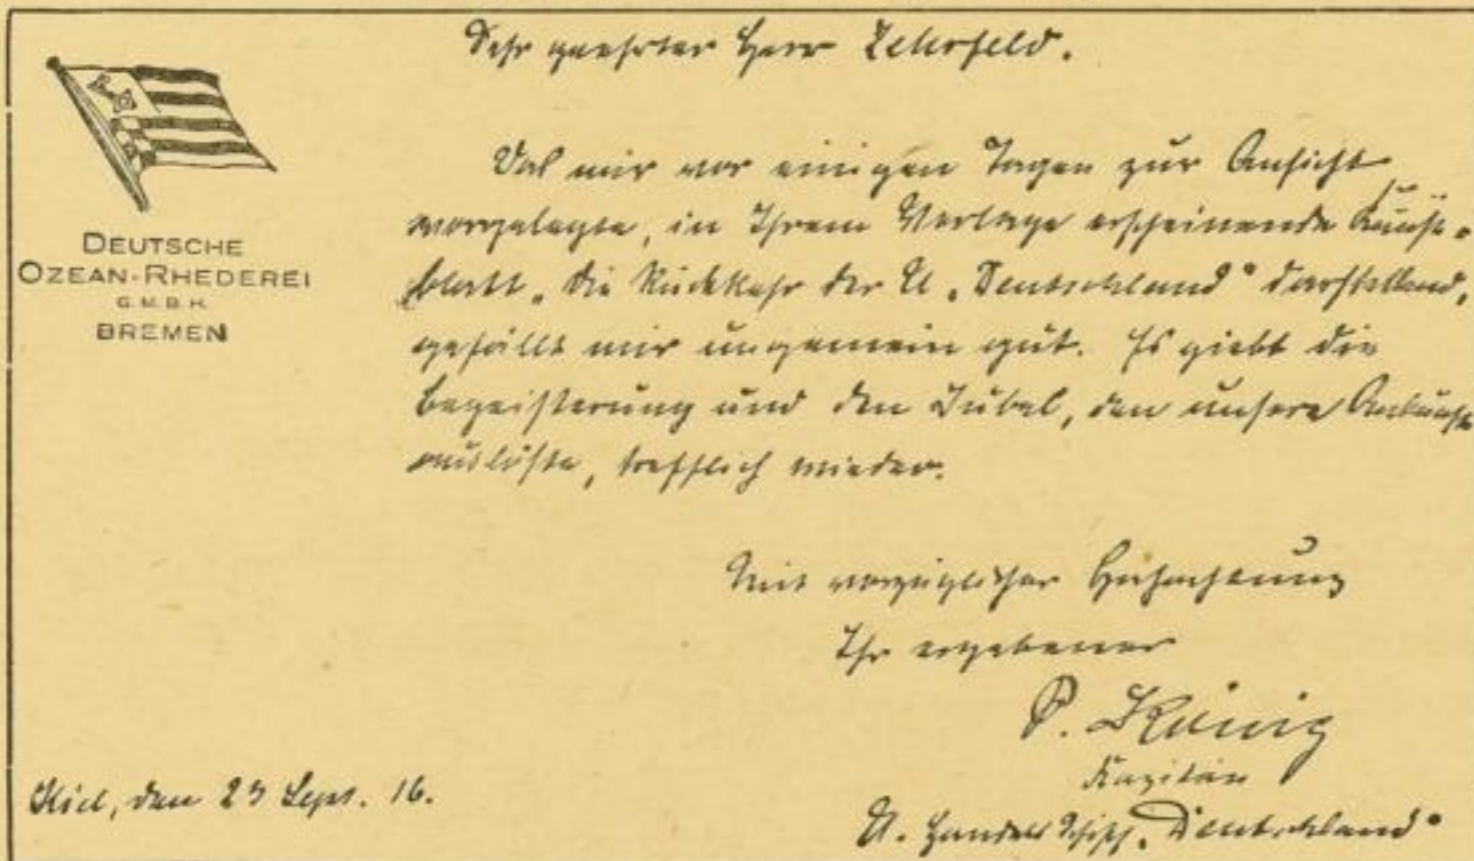 Sehr geehrter Herr Zehrfeld.
DEUTSCHE
OZEAN-RHEDEREI
G.M.B.H.
BREMEN
Das mir vor einigen Tagen zur Ansicht
vorgelegte, in Ihrem Verlage erscheinende Kunst-
blatt, die Rückkehr der U „Deutschland“ darstellend,
gefällt mir ungemein gut. Es giebt die
Begeisterung und den Jubel, den unsere Ankunft
auslöste, trefflich wieder.
Mit vorzüglicher Hochachtung
Ihr ergebener
P. König
Kapitän
U. Handels Schiff „Deutschland“
Kiel, den 23 Sept. 16.